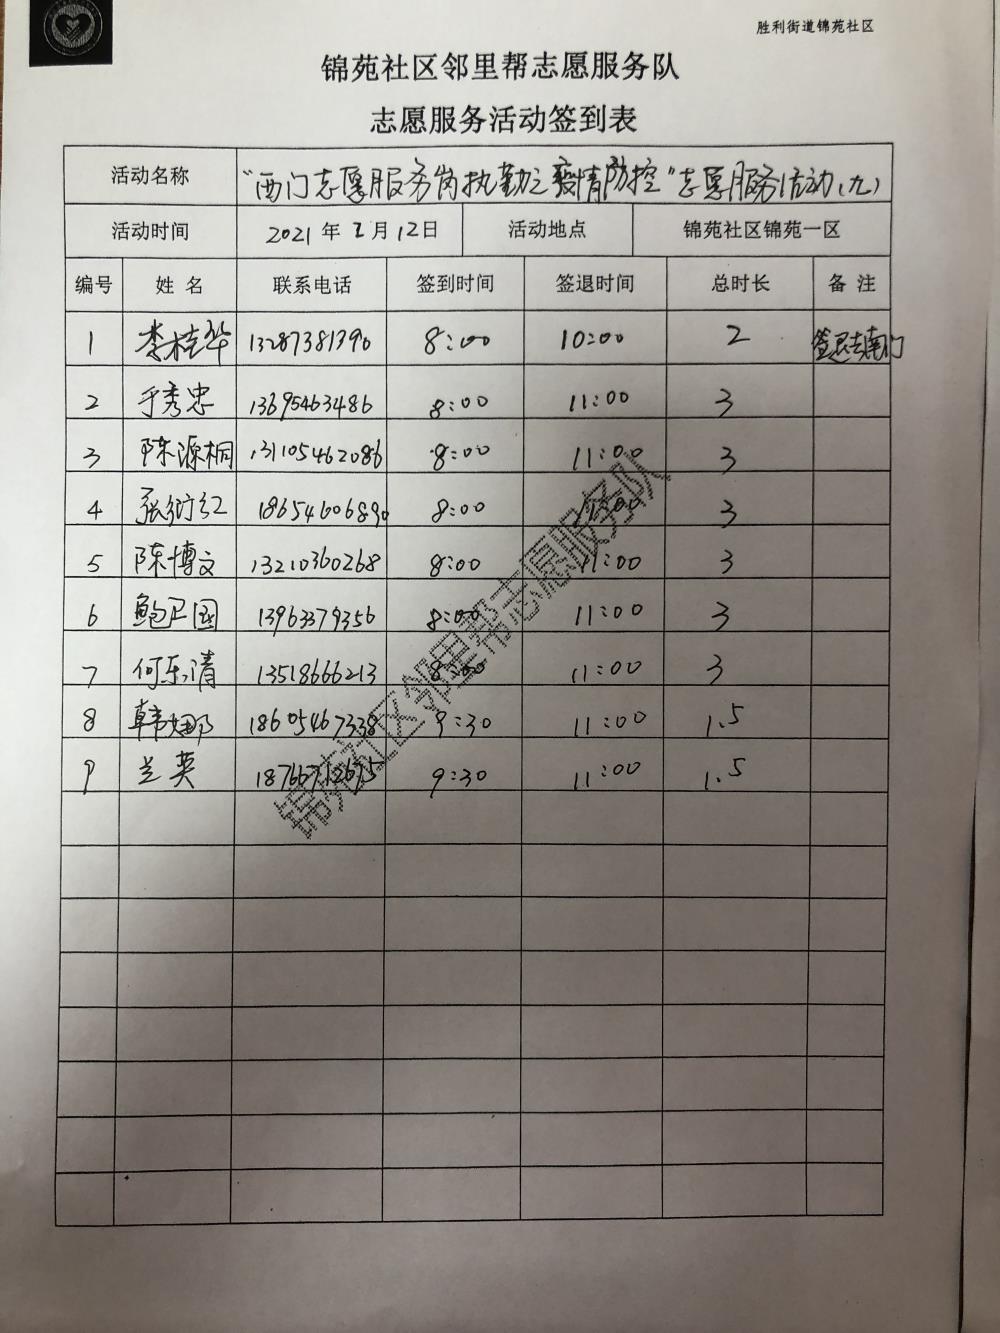 胜利街道锦苑社区
锦苑社区邻里帮志愿服务队
志愿服务活动签到表
活动名称 "西门志愿服务岗执勤之疫情防控"志愿服务活动(九)
活动时间 2021 年 2 月 12日 活动地点 锦苑社区锦苑一区
编号 姓 名 联系电话 签到时间 签退时间 总时长 备 注
1 李桂华 13287381390 8:00 10:00 2 签退去南门
2 于秀忠 13695463486 8:00 11:00 3
3 陈源桐 131105462086 8:00 11:00 3
4 张衍红 18654606890 8:00 11:00 3
5 陈博文 13210360268 8:00 11:00 3
6 鲍卫国 13963379356 8:00 11:00 3
7 何乐清 13518666213 8:00 11:00 3
8 韩娜 18605467338 9:30 11:00 1.5
9 兰英 9:30 11:00 1.5
锦苑社区邻里帮志愿服务队